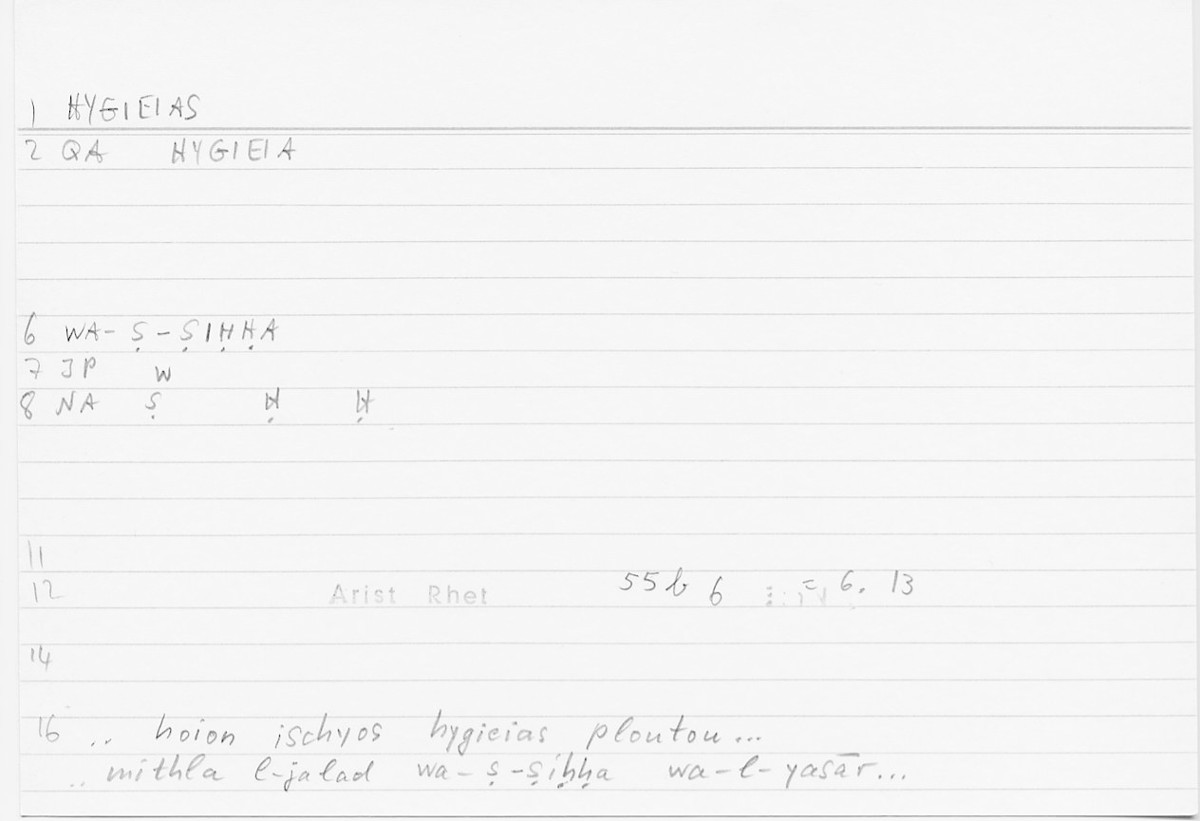 1 HYGIEIAS
2 QA HYGIEIA
6 WA-Ṣ-ṢIḤḤA
7 JP W
8 NA Ṣ Ḥ Ḥ
11
12 Arist Rhet 55b 6 = 6. 13
14
16 .. hoion ischyos hygieias ploutou...
.. mithla l-jalad wa-ṣ-ṣiḥḥa wa-l-yasār...